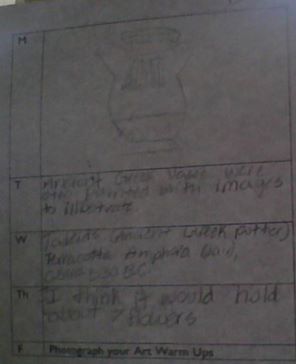 M
T Ancient Greek Vases were
often painted with images
to illustrate
W (Ancient Greek potter)
Terracotta Amphora (Jar),
530 B.C.
Th I think it would hold
about 7 flowers
F Photograph your Art Warm Ups